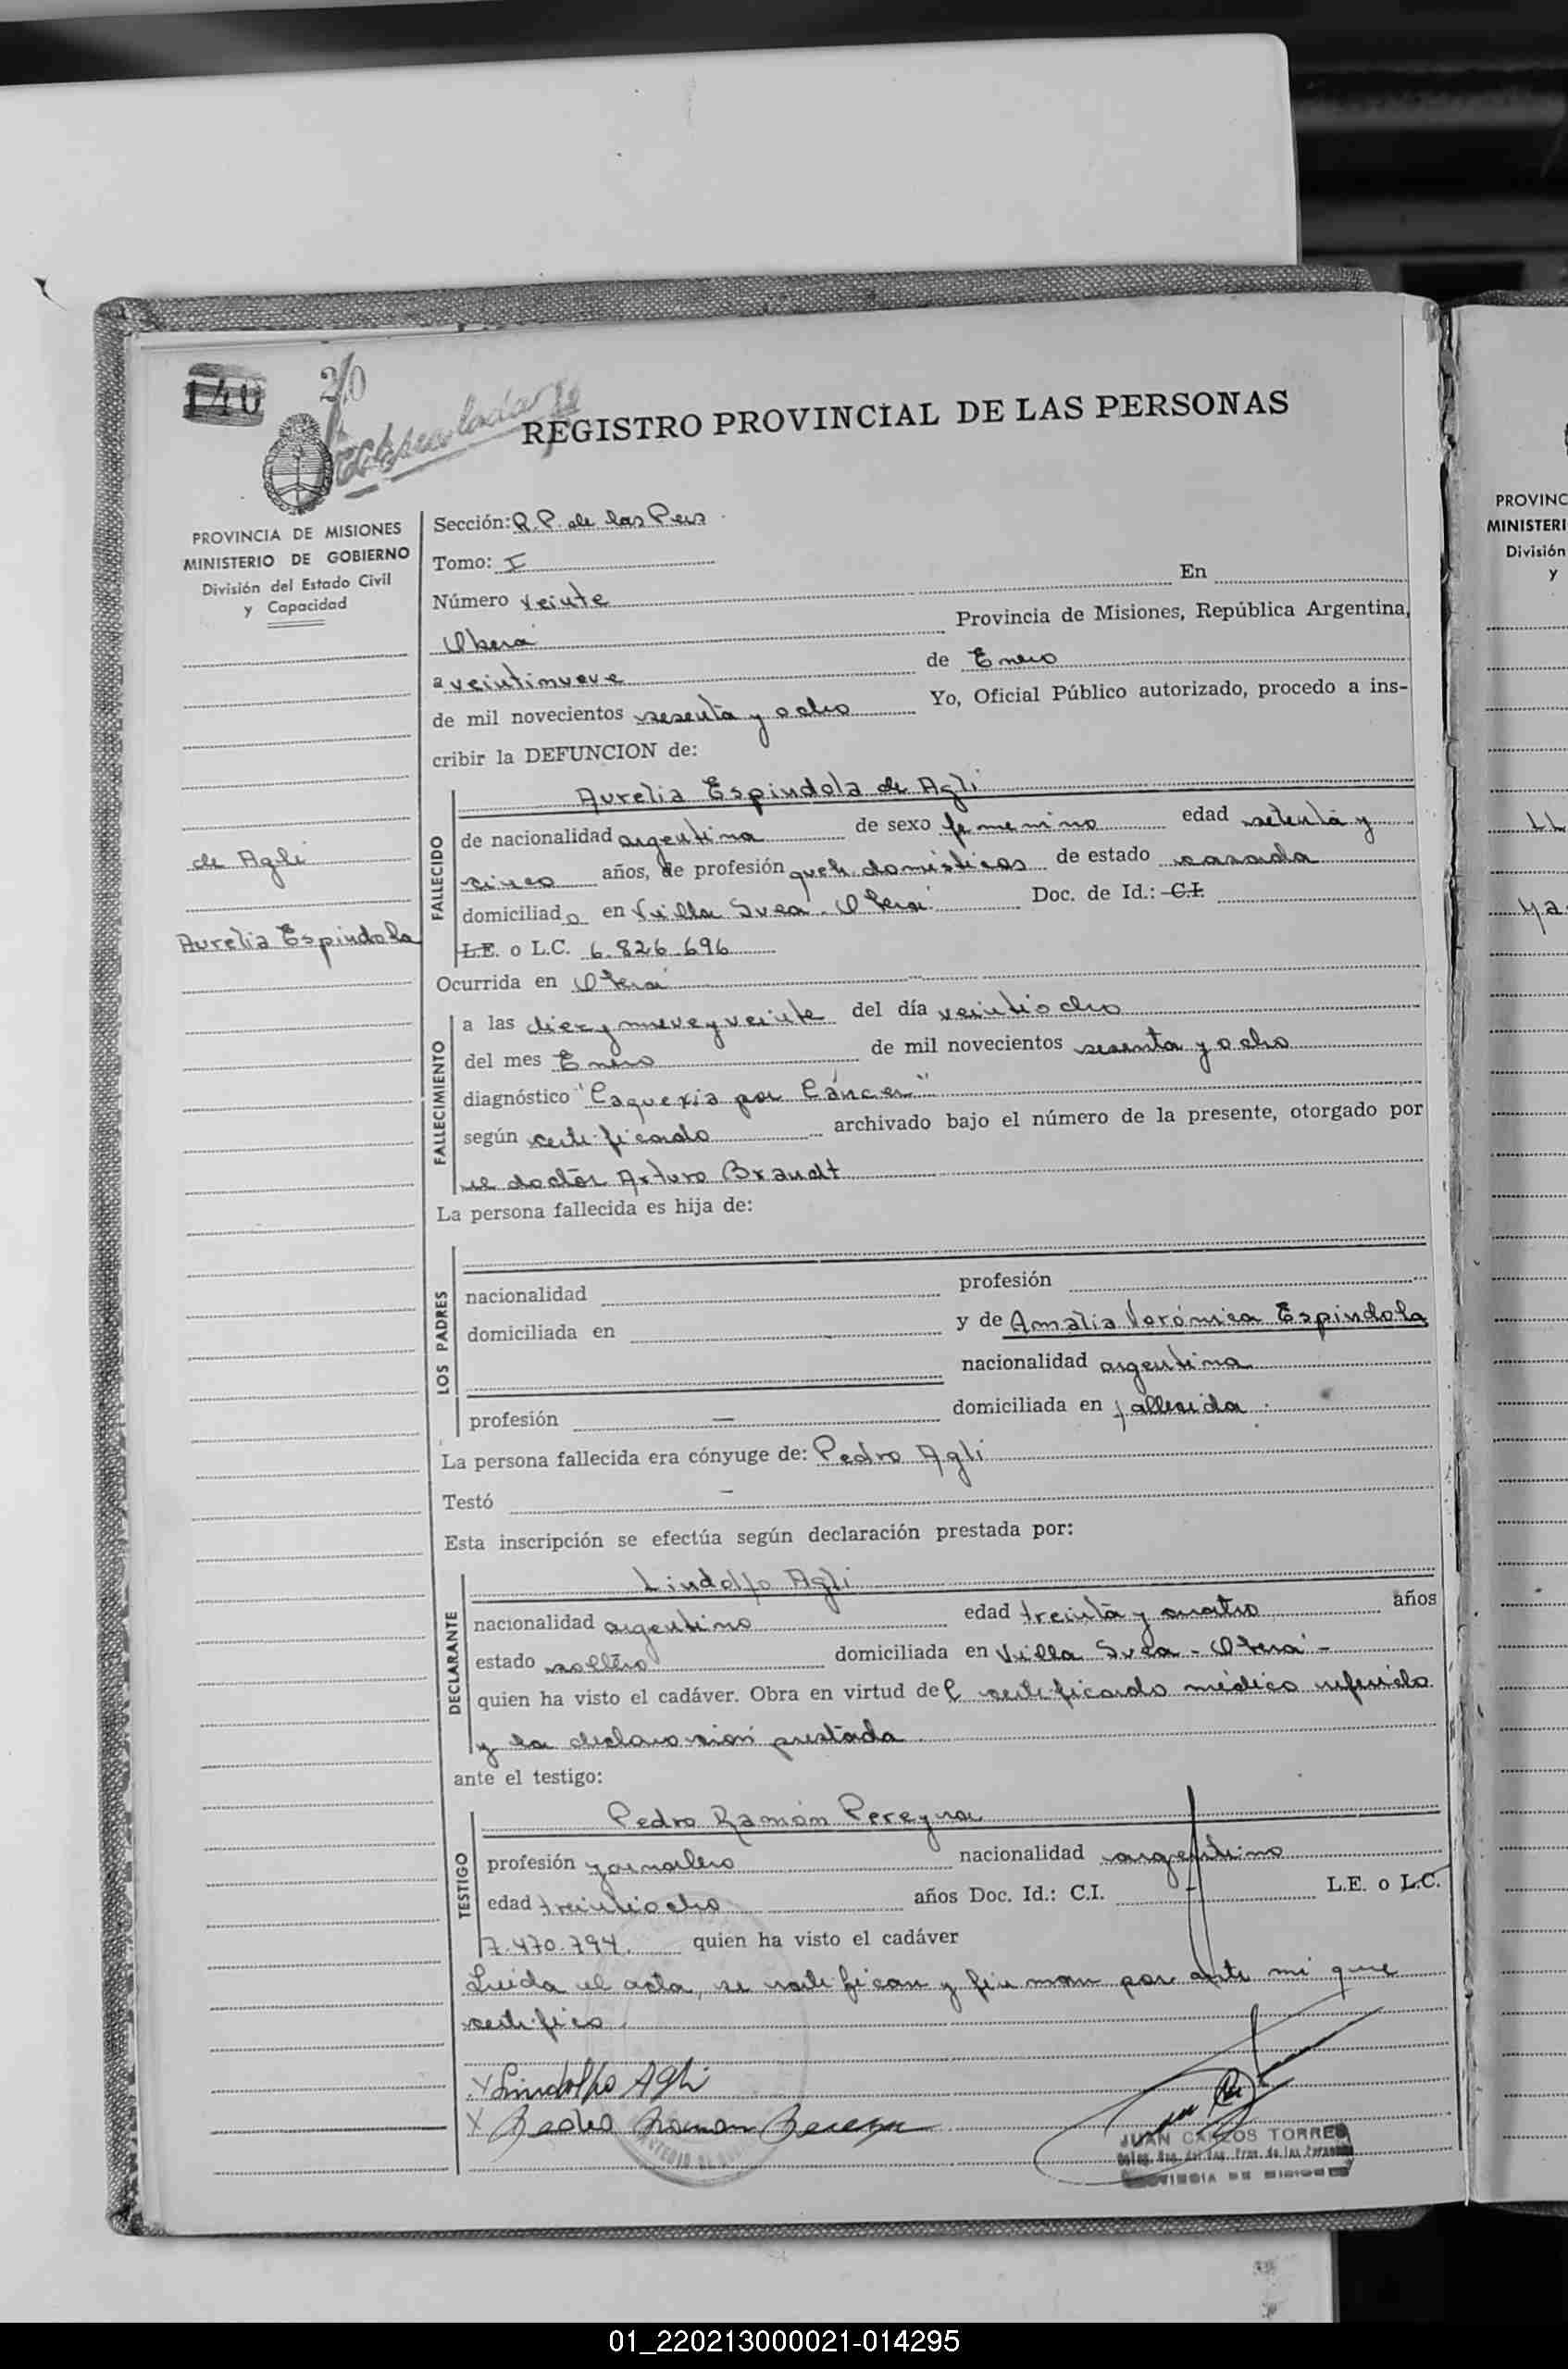 140
20
REGISTRO PROVINCIAL DE LAS PERSONAS
PROVINCIA DE MISIONES
MINISTERIO DE GOBIERNO
División del Estado Civil
y Capacidad
de Agli
Aurelia Espindola
Sección: R.P. de las Pers
Tomo: I
Número veinte En
Oberá Provincia de Misiones, República Argentina,
a veintinueve de Enero
de mil novecientos sesenta y ocho Yo, Oficial Público autorizado, procedo a ins-
cribir la DEFUNCION de:
FALLECIDO
Aurelia Espindola de Agli
de nacionalidad argentina de sexo femenino edad setenta y
cinco años, de profesión queh. domésticos de estado casada
domiciliado en Villa Svea - Oberá Doc. de Id.: C.I.
L.E. o L.C. 6.826.696
Ocurrida en Oberá
FALLECIMIENTO
a las diez y nueve y veinte del día veintiocho
del mes Enero de mil novecientos sesenta y ocho
diagnóstico "Caquexia por Cáncer"
según certificado archivado bajo el número de la presente, otorgado por
el doctor Arturo Brandt
La persona fallecida es hija de:
LOS PADRES
nacionalidad profesión
domiciliada en y de Amalia Verónica Espindola
nacionalidad argentina
profesión — domiciliada en fallecida
La persona fallecida era cónyuge de: Pedro Agli
Testó —
Esta inscripción se efectúa según declaración prestada por:
DECLARANTE
Lindolfo Agli
nacionalidad argentino edad treinta y cuatro años
estado soltero domiciliada en Villa Svea - Oberá -
quien ha visto el cadáver. Obra en virtud del certificado médico referido
y la declaración prestada
ante el testigo:
TESTIGO
Pedro Ramón Pereyra
profesión jornalero nacionalidad argentino
edad treintiocho años Doc. Id.: C.I. L.E. o L.C.
7.470.794. quien ha visto el cadáver
Leida el acta, se ratifican y firman por ante mi que
certifico.
x Lindolfo Agli
x Pedro Ramon Pereyra
JUAN CARLOS TORRES
PROVINCIA DE MISIONES
PROVINC
MINISTERI
División
y
01_220213000021-014295